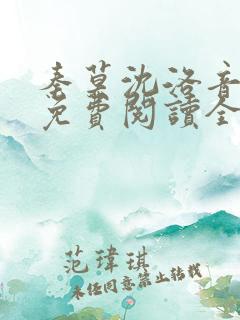 秦墓沈洛音
免費閱讀全
范瑋琪
未經同意禁止转載